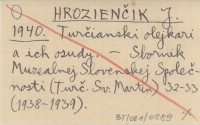 HROZIENČIK J.
1940. Turčianski olejkari
a ich osudy. - Sborník
Muzealnej Slovenskej Společ-
nosti (Turč. Sv. Martin) 32-33
(1938-1939).